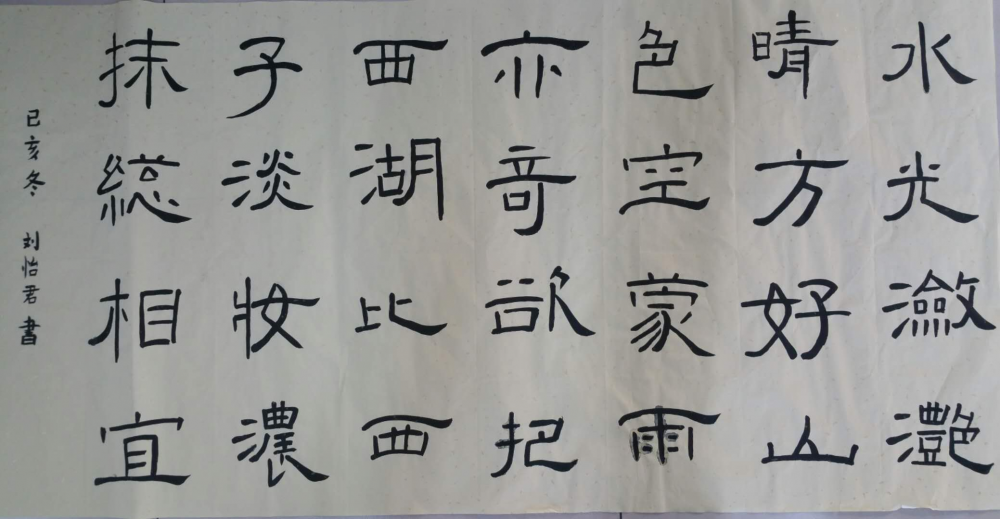 水光瀲灩
晴方好山
色空蒙雨
亦奇欲把
西湖比西
子淡妝濃
抹総相宜
己亥冬 刘怡君書